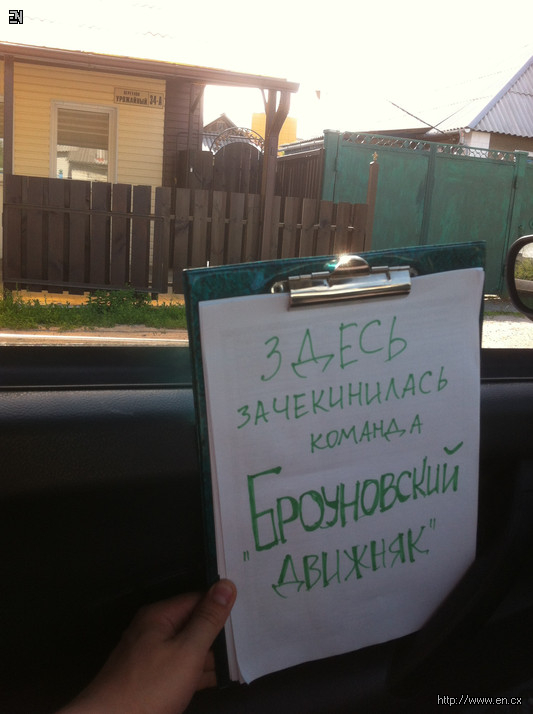 EN
УРОЖАЙНЫЙ 34-А
ЗДЕСЬ
ЗАЧЕКИНИЛАСЬ
КОМАНДА
"БРОУНОВСКИЙ
ДВИЖНЯК"
http://www.en.cx